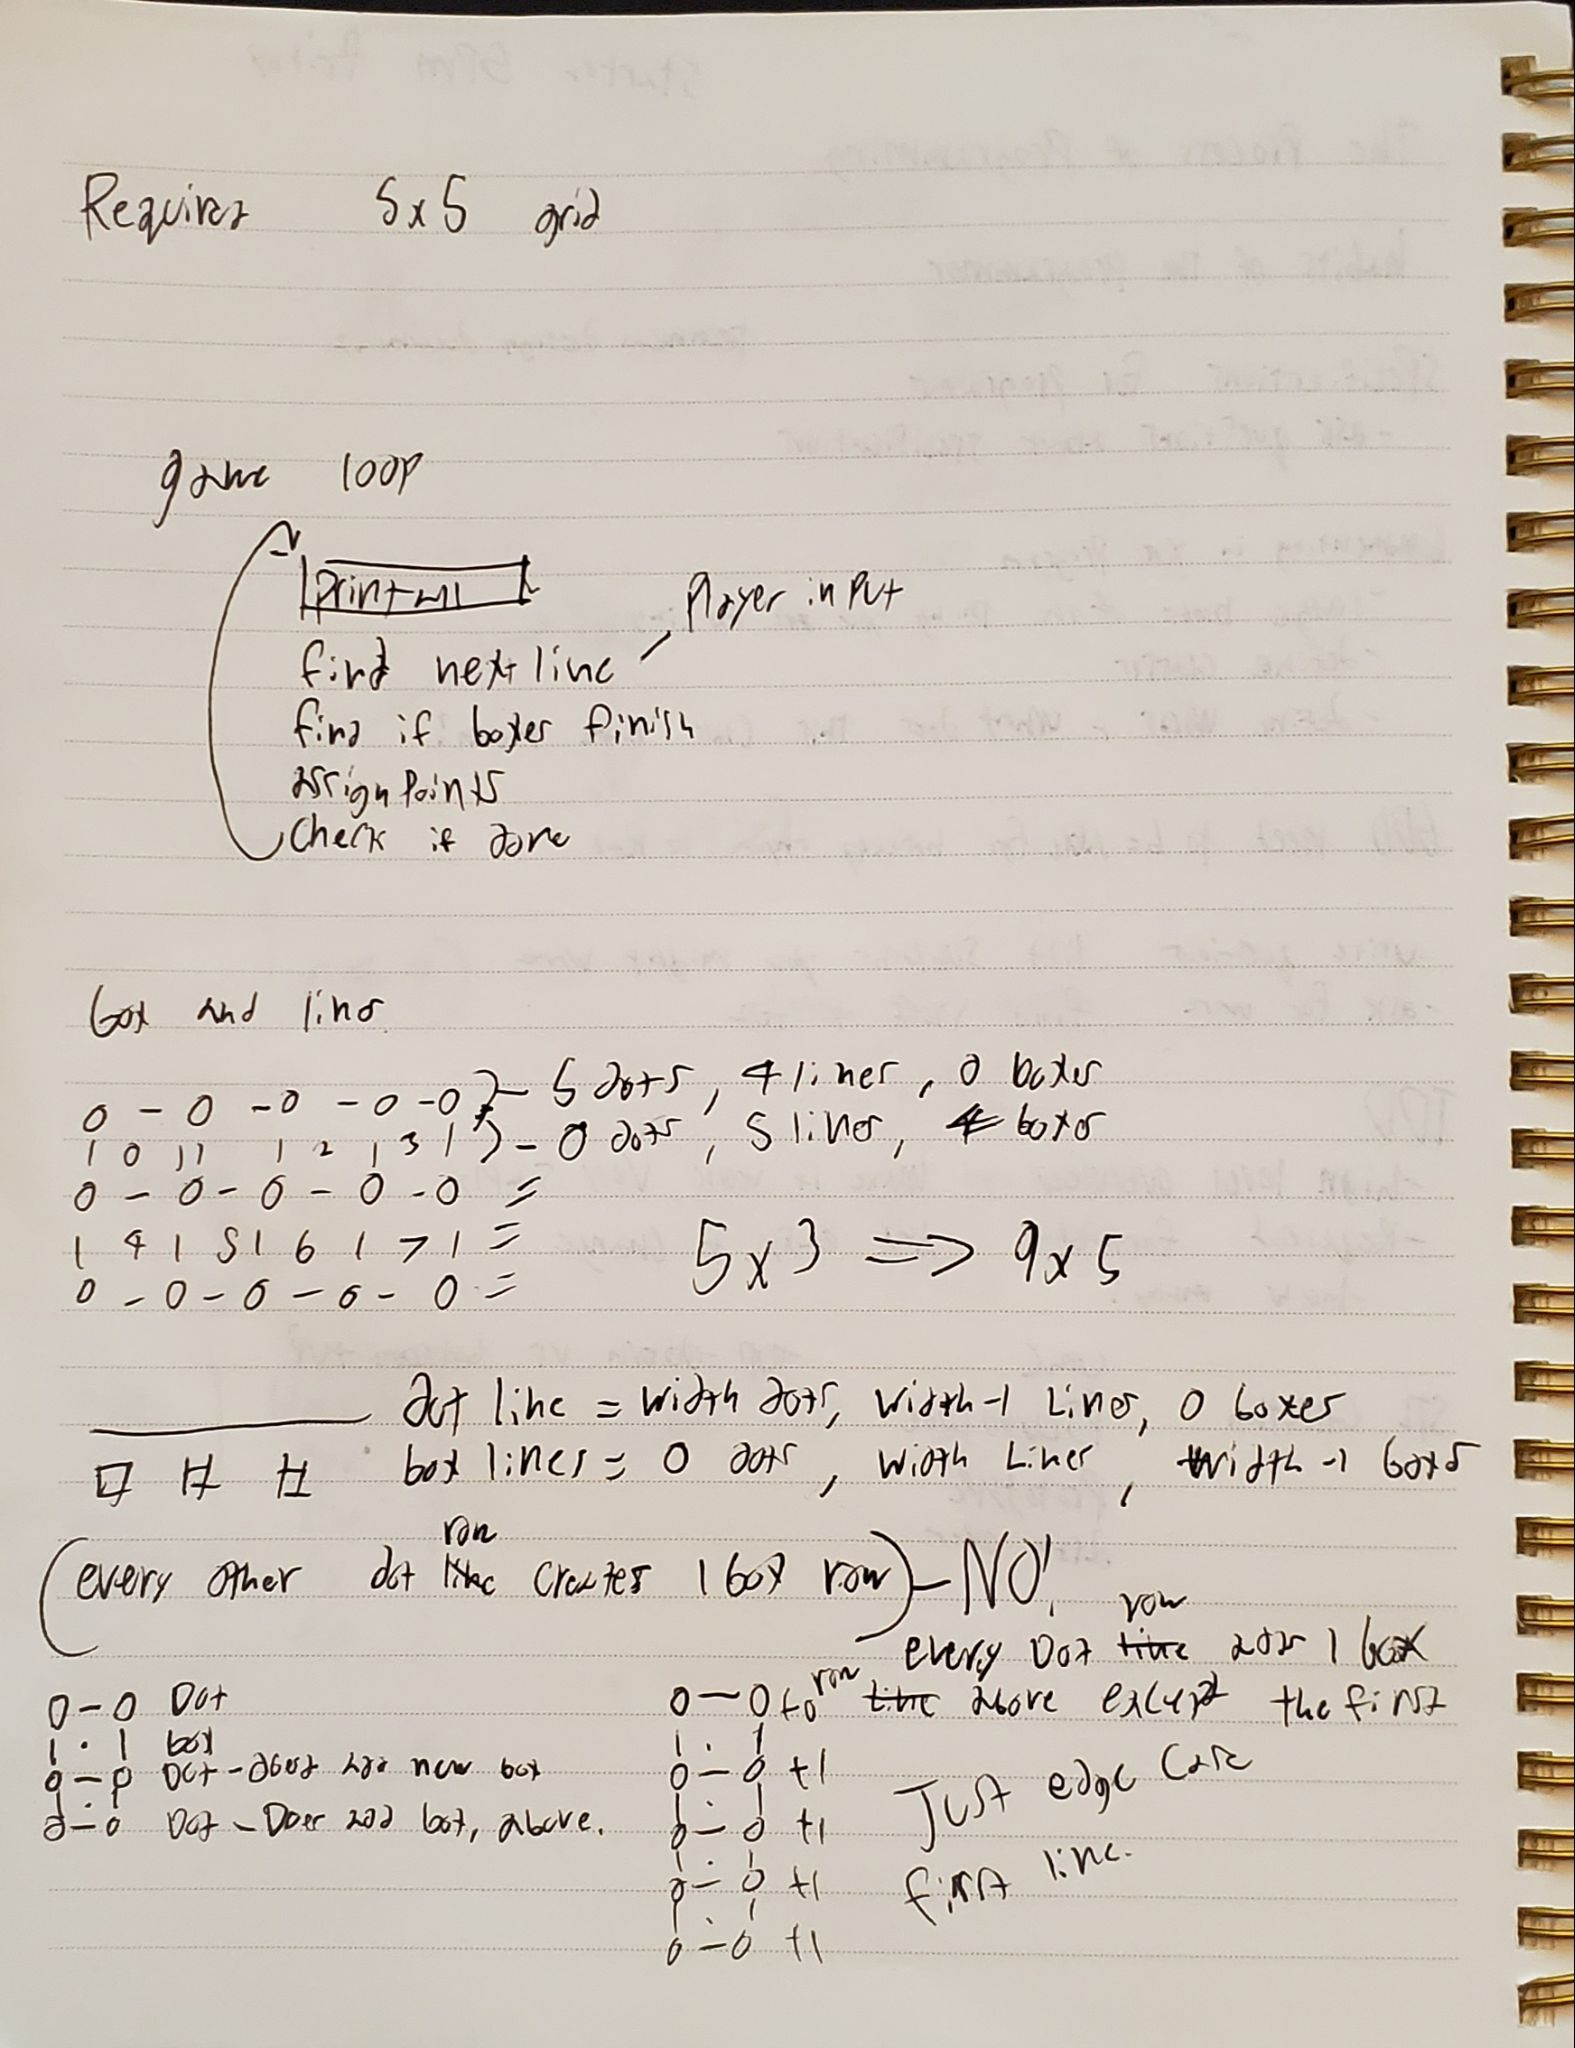 Requires 5x5 grid
game loop
print all
find next line
Player input
find if boxes finish
assign points
check if done
box and lines
0 - 0 - 0 - 0 - 0 } - 5 dots, 4 lines, 0 boxes
| 0 | 1 | 2 | 3 | } - 0 dots, 5 lines, 4 boxes
0 - 0 - 0 - 0 - 0 =
| 4 | 5 | 6 | 7 | =
0 - 0 - 0 - 0 - 0 =
5x3 => 9x5
dot line = width dots, width-1 Lines, 0 boxes
box lines = 0 dots, width Lines, width-1 boxes
row
(every other dot line creates 1 box row) - NO!
row
every Dot line adds 1 box
row
line above except the first
0-0 Dot
|.| box
0-0 Dot - does add new box
|.|
0-0 Dot - Does add box, above.
0-0 +0
|.|
0-0 +1
|.|
0-0 +1
|.|
0-0 +1
|.|
0-0 +1
Just edge case
first line.